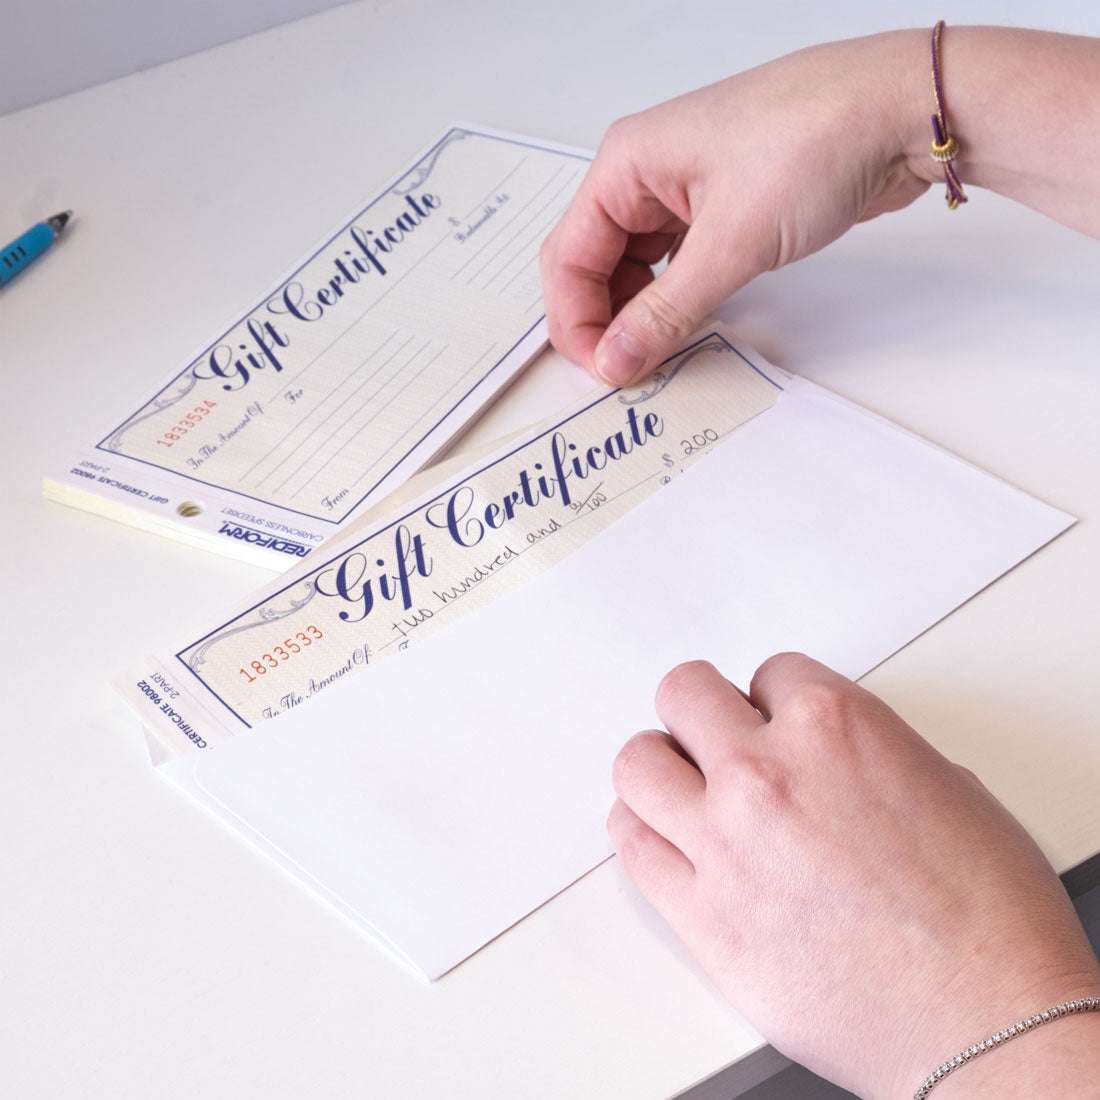 Gift Certificate
1833534
$
Redeemable At:
In The Amount Of:
For
From
GIFT CERTIFICATE 98002
2-PART
CARBONLESS SPEEDISET
REDIFORM
Gift Certificate
1833533
$ 200
In The Amount Of: two hundred and 00/100
CERTIFICATE 98002
2-PART